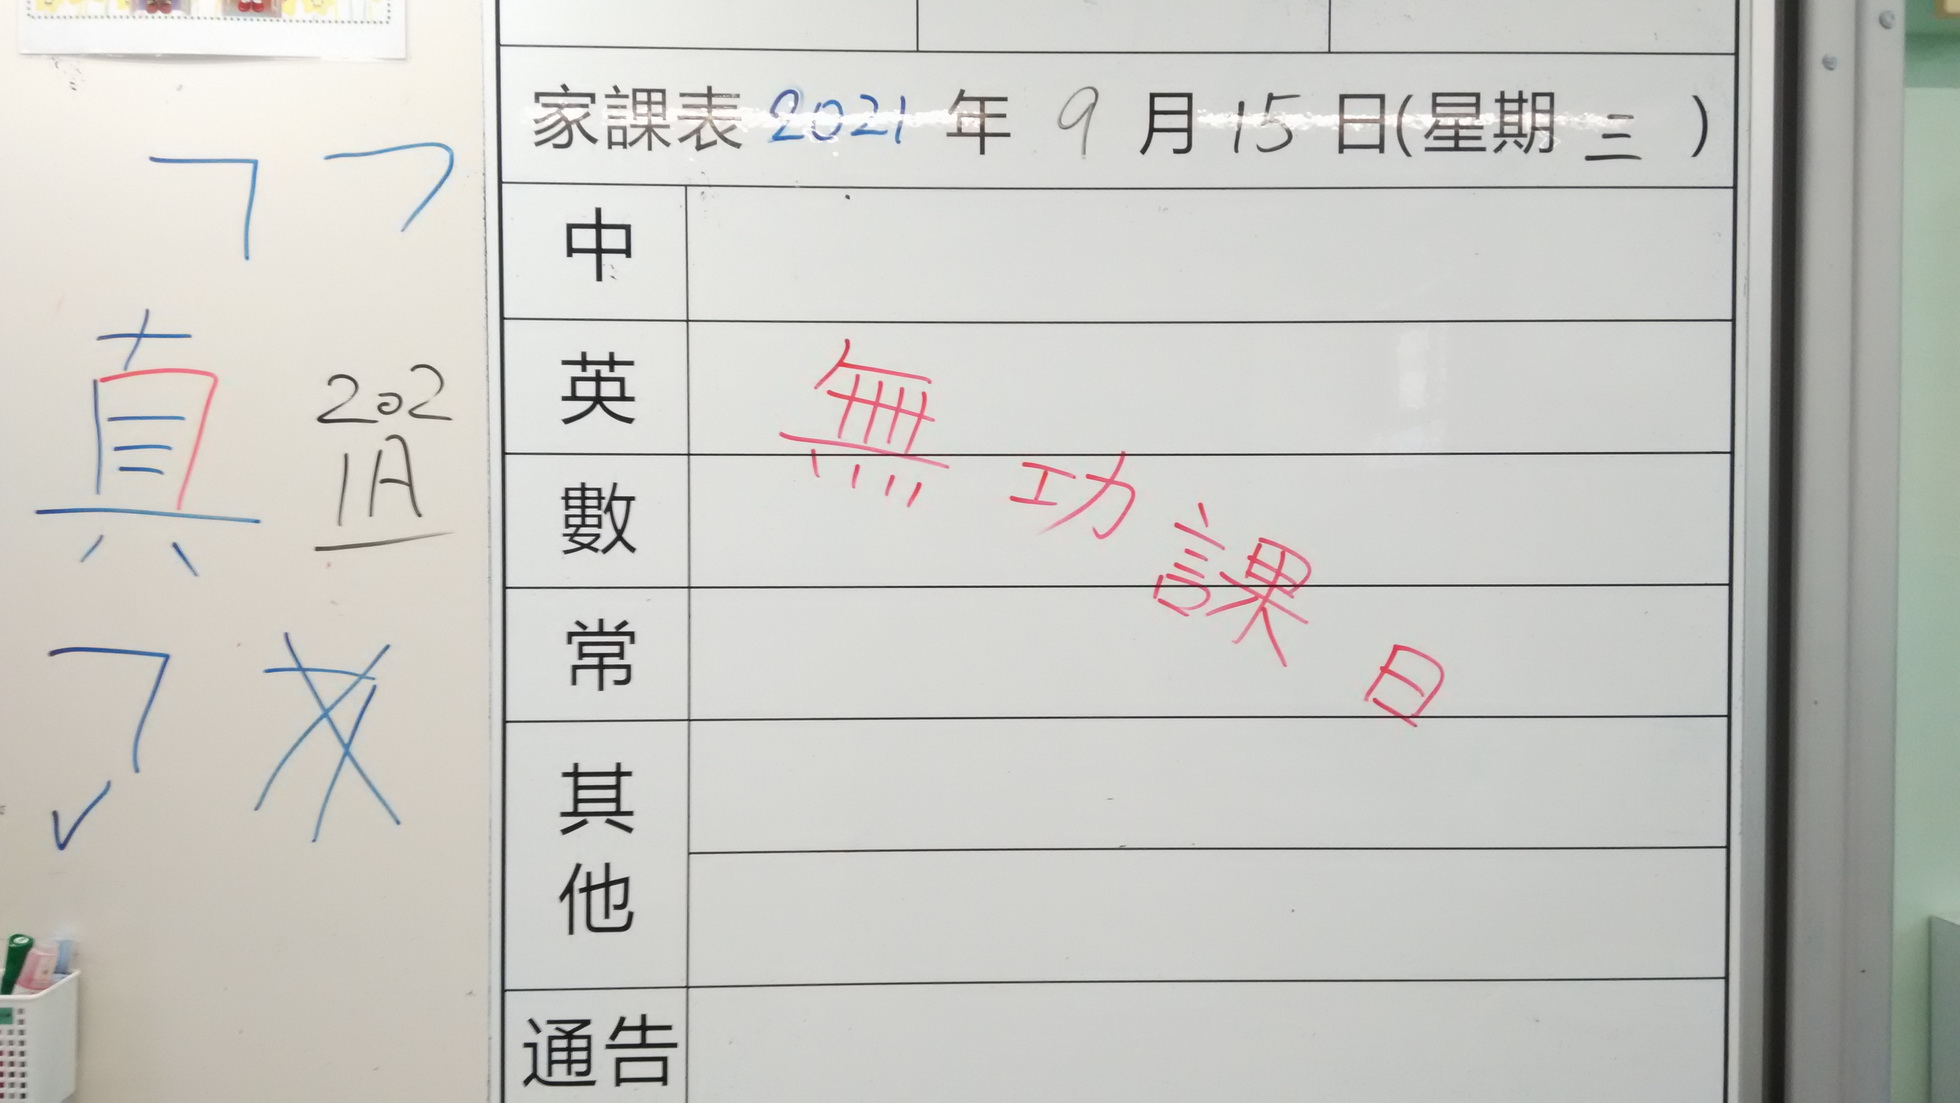 家課表 2021 年 9 月 15 日(星期 三 )
中
英
數
常
其他
通告
無功課日
真
202
1A